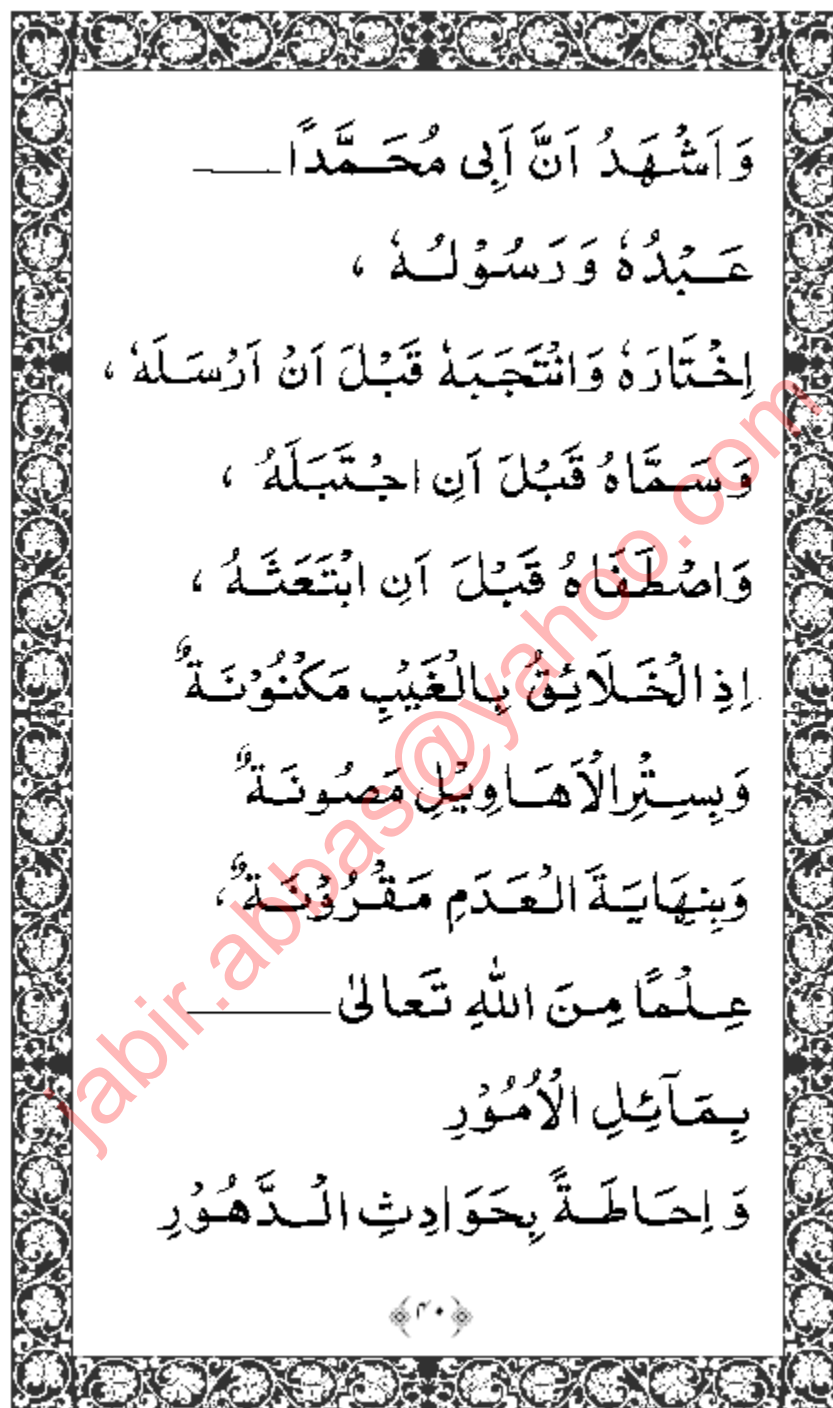 وَاَشْهَدُ اَنَّ اَبِى مُحَمَّدًا ـــــ
عَبْدُهٗ وَرَسُوْلُهٗ ،
اِخْتَارَهٗ وَانْتَجَبَهٗ قَبْلَ اَنْ اَرْسَلَهٗ ،
وَسَمَّاهُ قَبْلَ اَنِ اجْتَبَلَهُ ،
وَاصْطَفَاهُ قَبْلَ اَنِ ابْتَعَثَهُ ،
اِذِ الْخَلَائِقُ بِالْغَيْبِ مَكْنُوْنَةٌ
وَبِسِتْرِ الْاَهَاوِيْلِ مَصُونَةٌ
وَبِنِهَايَةَ الْعَدَمِ مَقْرُوْنَةٌ ،
عِلْمًا مِنَ اللّٰهِ تَعالىٰ ـــــ
بِمَآئِلِ الْاُمُوْرِ
وَ اِحَاطَةً بِحَوَادِثِ الدَّهُوْرِ
﴿۴۰﴾
jabir.abbas@yahoo.com